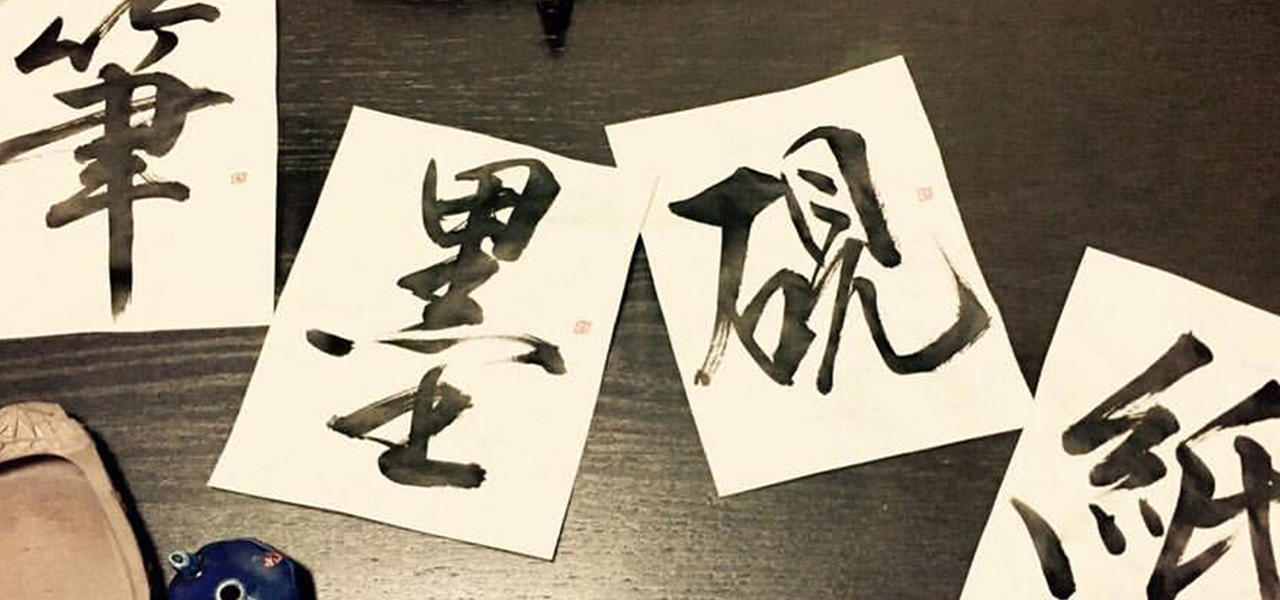 筆
墨
硯
紙